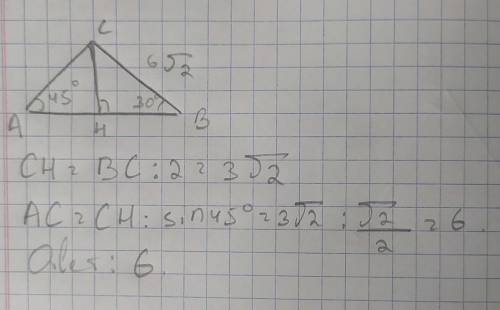 C
6√2
45°
30°
A
H
B
CH = BC : 2 = 3√2
AC = CH : sin 45° = 3√2 : √2/2 = 6.
Ответ: 6.